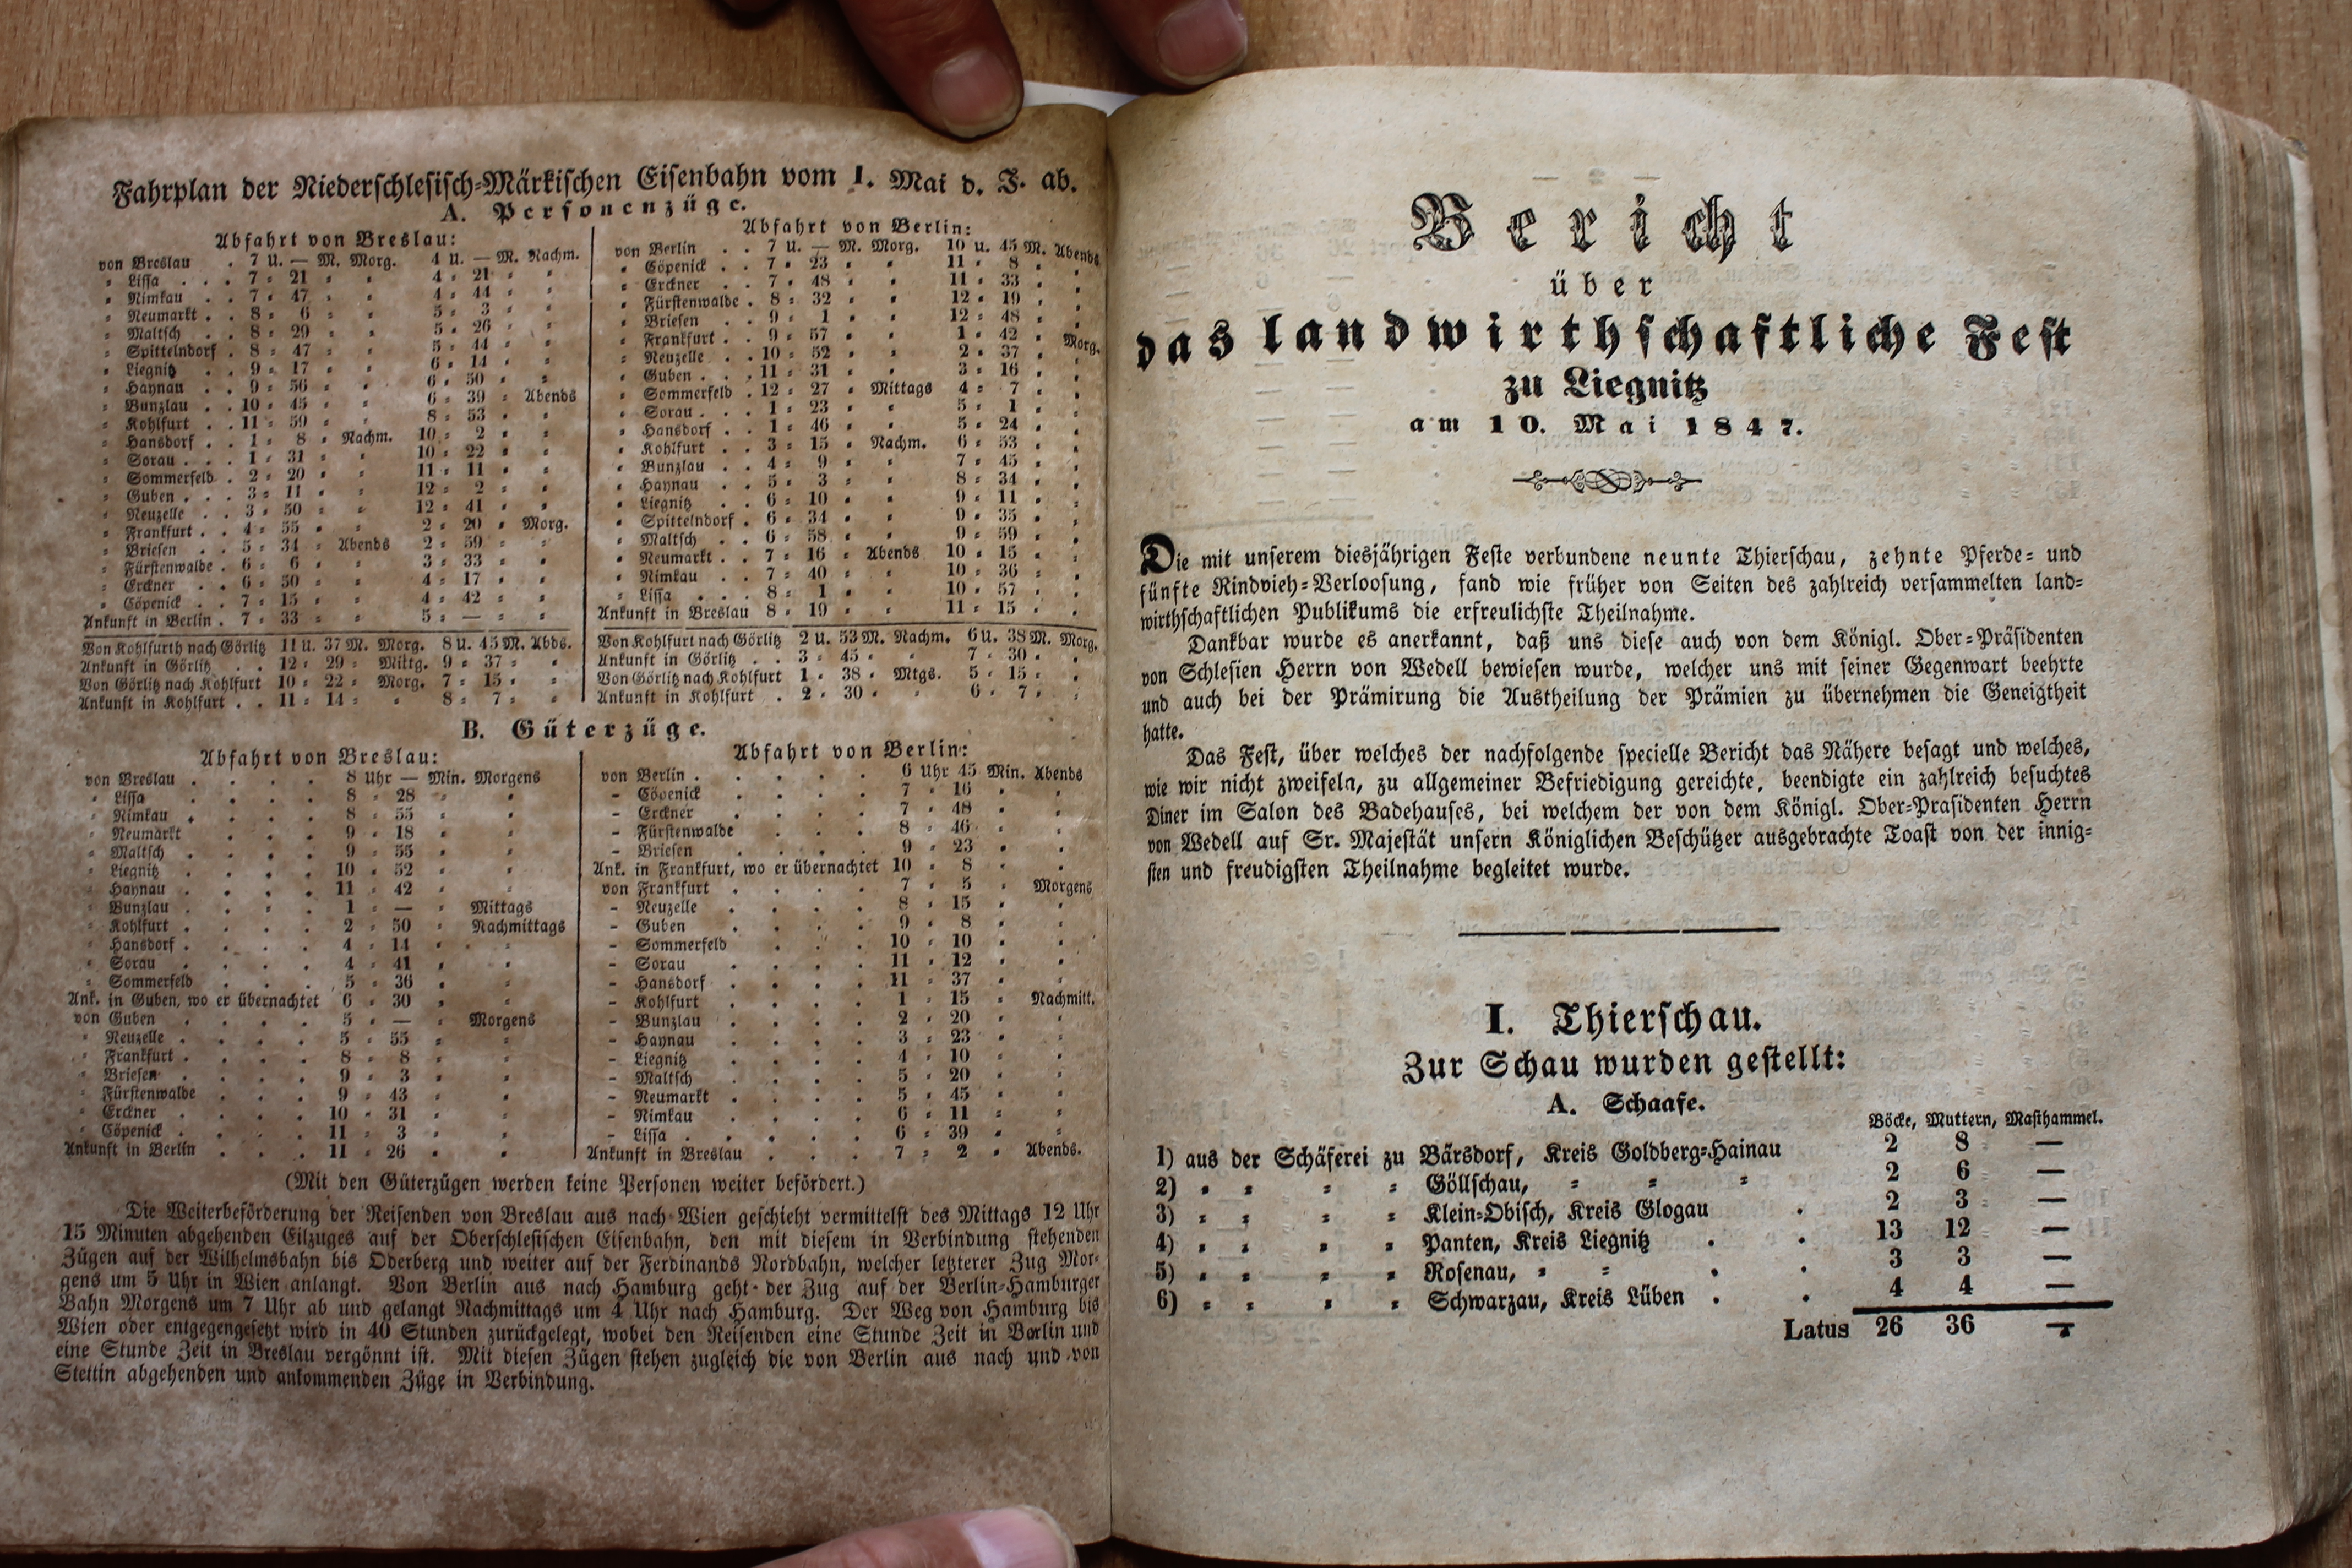 Fahrplan der Niederschlesisch-Märkischen Eisenbahn vom 1. Mai d. J. ab.
A. Personenzüge.
Abfahrt von Breslau:
von Breslau . 7 U. — M. Morg. 4 U. — M. Nachm.
" Lissa . . . 7 " 21 " " 4 " 21 " "
" Nimkau . . 7 " 47 " " 4 " 44 " "
" Neumarkt . . 8 " 6 " " 5 " 3 " "
" Maltsch . . 8 " 29 " " 5 " 26 " "
" Spittelndorf . 8 " 47 " " 5 " 44 " "
" Liegnitz . . 9 " 17 " " 6 " 14 " "
" Haynau . . 9 " 56 " " 6 " 50 " "
" Bunzlau . . 10 " 45 " " 6 " 39 " Abends
" Kohlfurt . . 11 " 59 " " 8 " 53 " "
" Hansdorf . . 1 " 8 " Nachm. 10 " 2 " "
" Sorau . . . 1 " 31 " " 10 " 22 " "
" Sommerfeld . 2 " 20 " " 11 " 11 " "
" Guben . . . 3 " 11 " " 12 " 2 " "
" Neuzelle . . 3 " 50 " " 12 " 41 " "
" Frankfurt . . 4 " 55 " " 2 " 20 " Morg.
" Briesen . . 5 " 34 " Abends 2 " 59 " "
" Fürstenwalde . 6 " 6 " " 3 " 33 " "
" Erckner . . 6 " 50 " " 4 " 17 " "
" Cöpenick . . 7 " 15 " " 4 " 42 " "
Ankunft in Berlin . 7 " 33 " " 5 " — " "
Von Kohlfurth nach Görlitz 11 U. 37 M. Morg. 8 U. 45 M. Abds.
Ankunft in Görlitz . . 12 " 29 " Mittg. 9 " 37 " "
Von Görlitz nach Kohlfurt 10 " 22 " Morg. 7 " 15 " "
Ankunft in Kohlfurt . . 11 " 14 " " 8 " 7 " "
Abfahrt von Berlin:
von Berlin . . 7 U. — M. Morg. 10 U. 45 M. Abends
" Cöpenick . . 7 " 23 " " 11 " 8 " "
" Erckner . . 7 " 48 " " 11 " 33 " "
" Fürstenwalde . 8 " 32 " " 12 " 19 " "
" Briesen . . 9 " 1 " " 12 " 48 " "
" Frankfurt . . 9 " 57 " " 1 " 42 " Morg.
" Neuzelle . . 10 " 52 " " 2 " 37 " "
" Guben . . . 11 " 31 " " 3 " 16 " "
" Sommerfeld . 12 " 27 " Mittags 4 " 7 " "
" Sorau . . . 1 " 23 " " 5 " 1 " "
" Hansdorf . . 1 " 46 " " 5 " 24 " "
" Kohlfurt . . 3 " 15 " Nachm. 6 " 53 " "
" Bunzlau . . 4 " 9 " " 7 " 45 " "
" Haynau . . 5 " 3 " " 8 " 34 " "
" Liegnitz . . 6 " 10 " " 9 " 11 " "
" Spittelndorf . 6 " 34 " " 9 " 35 " "
" Maltsch . . 6 " 58 " " 9 " 59 " "
" Neumarkt . . 7 " 16 " Abends 10 " 15 " "
" Nimkau . . 7 " 40 " " 10 " 36 " "
" Lissa . . . 8 " 1 " " 10 " 57 " "
Ankunft in Breslau 8 " 19 " " 11 " 15 " "
Von Kohlfurt nach Görlitz 2 U. 53 M. Nachm. 6 U. 38 M. Morg.
Ankunft in Görlitz . . 3 " 45 " " 7 " 30 " "
Von Görlitz nach Kohlfurt 1 " 38 " Mtgs. 5 " 15 " "
Ankunft in Kohlfurt . 2 " 30 " " 6 " 7 " "
B. Güterzüge.
Abfahrt von Breslau:
von Breslau . . . . 8 Uhr — Min. Morgens
" Lissa . . . . 8 " 28 " "
" Nimkau . . . . 8 " 55 " "
" Neumarkt . . . . 9 " 18 " "
" Maltsch . . . . 9 " 55 " "
" Liegnitz . . . . 10 " 52 " "
" Haynau . . . . 11 " 42 " "
" Bunzlau . . . . 1 " — " Mittags
" Kohlfurt . . . . 2 " 50 " Nachmittags
" Hansdorf . . . . 4 " 14 " "
" Sorau . . . . 4 " 41 " "
" Sommerfeld . . . 5 " 36 " "
Ank. in Guben, wo er übernachtet 6 " 30 " "
von Guben . . . . 5 " — " Morgens
" Neuzelle . . . . 5 " 55 " "
" Frankfurt . . . . 8 " 8 " "
" Briesen . . . . 9 " 3 " "
" Fürstenwalde . . . 9 " 43 " "
" Erckner . . . . 10 " 31 " "
" Cöpenick . . . . 11 " 3 " "
Ankunft in Berlin . . . 11 " 26 " "
Abfahrt von Berlin:
von Berlin . . . . 6 Uhr 45 Min. Abends
– Cöpenick . . . . 7 " 16 " "
– Erckner . . . . 7 " 48 " "
– Fürstenwalde . . . 8 " 46 " "
– Briesen . . . . 9 " 23 " "
Ank. in Frankfurt, wo er übernachtet 10 " 8 " "
von Frankfurt . . . . 7 " 5 " Morgens
– Neuzelle . . . . 8 " 15 " "
– Guben . . . . 9 " 8 " "
– Sommerfeld . . . 10 " 10 " "
– Sorau . . . . 11 " 12 " "
– Hansdorf . . . . 11 " 37 " "
– Kohlfurt . . . . 1 " 15 " Nachmitt.
– Bunzlau . . . . 2 " 20 " "
– Haynau . . . . 3 " 23 " "
– Liegnitz . . . . 4 " 10 " "
– Maltsch . . . . 5 " 20 " "
– Neumarkt . . . . 5 " 45 " "
– Nimkau . . . . 6 " 11 " "
– Lissa . . . . 6 " 39 " "
Ankunft in Breslau . . . 7 " 2 " Abends.
(Mit den Güterzügen werden keine Personen weiter befördert.)
Die Weiterbeförderung der Reisenden von Breslau aus nach Wien geschieht vermittelst des Mittags 12 Uhr
15 Minuten abgehenden Eilzuges auf der Oberschlesischen Eisenbahn, den mit diesem in Verbindung stehenden
Zügen auf der Wilhelmsbahn bis Oderberg und weiter auf der Ferdinands Nordbahn, welcher letzterer Zug Mor-
gens um 5 Uhr in Wien anlangt. Von Berlin aus nach Hamburg geht der Zug auf der Berlin-Hamburger
Bahn Morgens um 7 Uhr ab und gelangt Nachmittags um 4 Uhr nach Hamburg. Der Weg von Hamburg bis
Wien oder entgegengesetzt wird in 40 Stunden zurückgelegt, wobei den Reisenden eine Stunde Zeit in Berlin und
eine Stunde Zeit in Breslau vergönnt ist. Mit diesen Zügen stehen zugleich die von Berlin aus nach und von
Stettin abgehenden und ankommenden Züge in Verbindung.
Bericht
über
das landwirthschaftliche Fest
zu Liegnitz
am 10. Mai 1847.
Die mit unserem diesjährigen Feste verbundene neunte Thierschau, zehnte Pferde- und
fünfte Rindvieh-Verloosung, fand wie früher von Seiten des zahlreich versammelten land-
wirthschaftlichen Publikums die erfreulichste Theilnahme.
Dankbar wurde es anerkannt, daß uns diese auch von dem Königl. Ober-Präsidenten
von Schlesien Herrn von Wedell bewiesen wurde, welcher uns mit seiner Gegenwart beehrte
und auch bei der Prämirung die Austheilung der Prämien zu übernehmen die Geneigtheit
hatte.
Das Fest, über welches der nachfolgende specielle Bericht das Nähere besagt und welches,
wie wir nicht zweifeln, zu allgemeiner Befriedigung gereichte, beendigte ein zahlreich besuchtes
Diner im Salon des Badehauses, bei welchem der von dem Königl. Ober-Prasidenten Herrn
von Wedell auf Sr. Majestät unsern Königlichen Beschützer ausgebrachte Toast von der innig-
sten und freudigsten Theilnahme begleitet wurde.
I. Thierschau.
Zur Schau wurden gestellt:
A. Schaafe.
Böcke, Muttern, Masthammel.
1) aus der Schäferei zu Bärsdorf, Kreis Goldberg-Hainau 2 8 —
2) " " " " Göllschau, " " " 2 6 —
3) " " " " Klein-Obisch, Kreis Glogau . 2 3 —
4) " " " " Panten, Kreis Liegnitz . . 13 12 —
5) " " " " Rosenau, " " . . 3 3 —
6) " " " " Schwarzau, Kreis Lüben . . 4 4 —
Latus 26 36 —